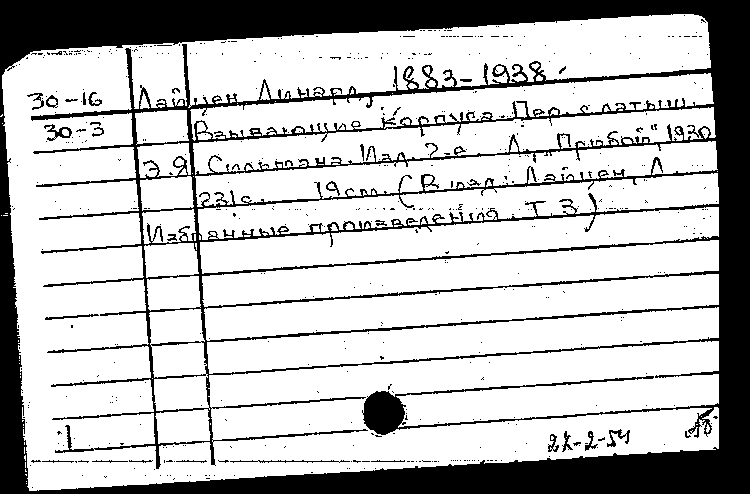 30-16 Лайцен, Линард, 1883-1938.
30-3 Взывающие корпуса. Пер. с латыш.
Э.Я. Сильмана. Изд. 2-е. Л., "Прибой", 1930
231с. 19см. (В изд.: Лайцен, Л.
Избранные произведения. Т. 3)
27-2-54